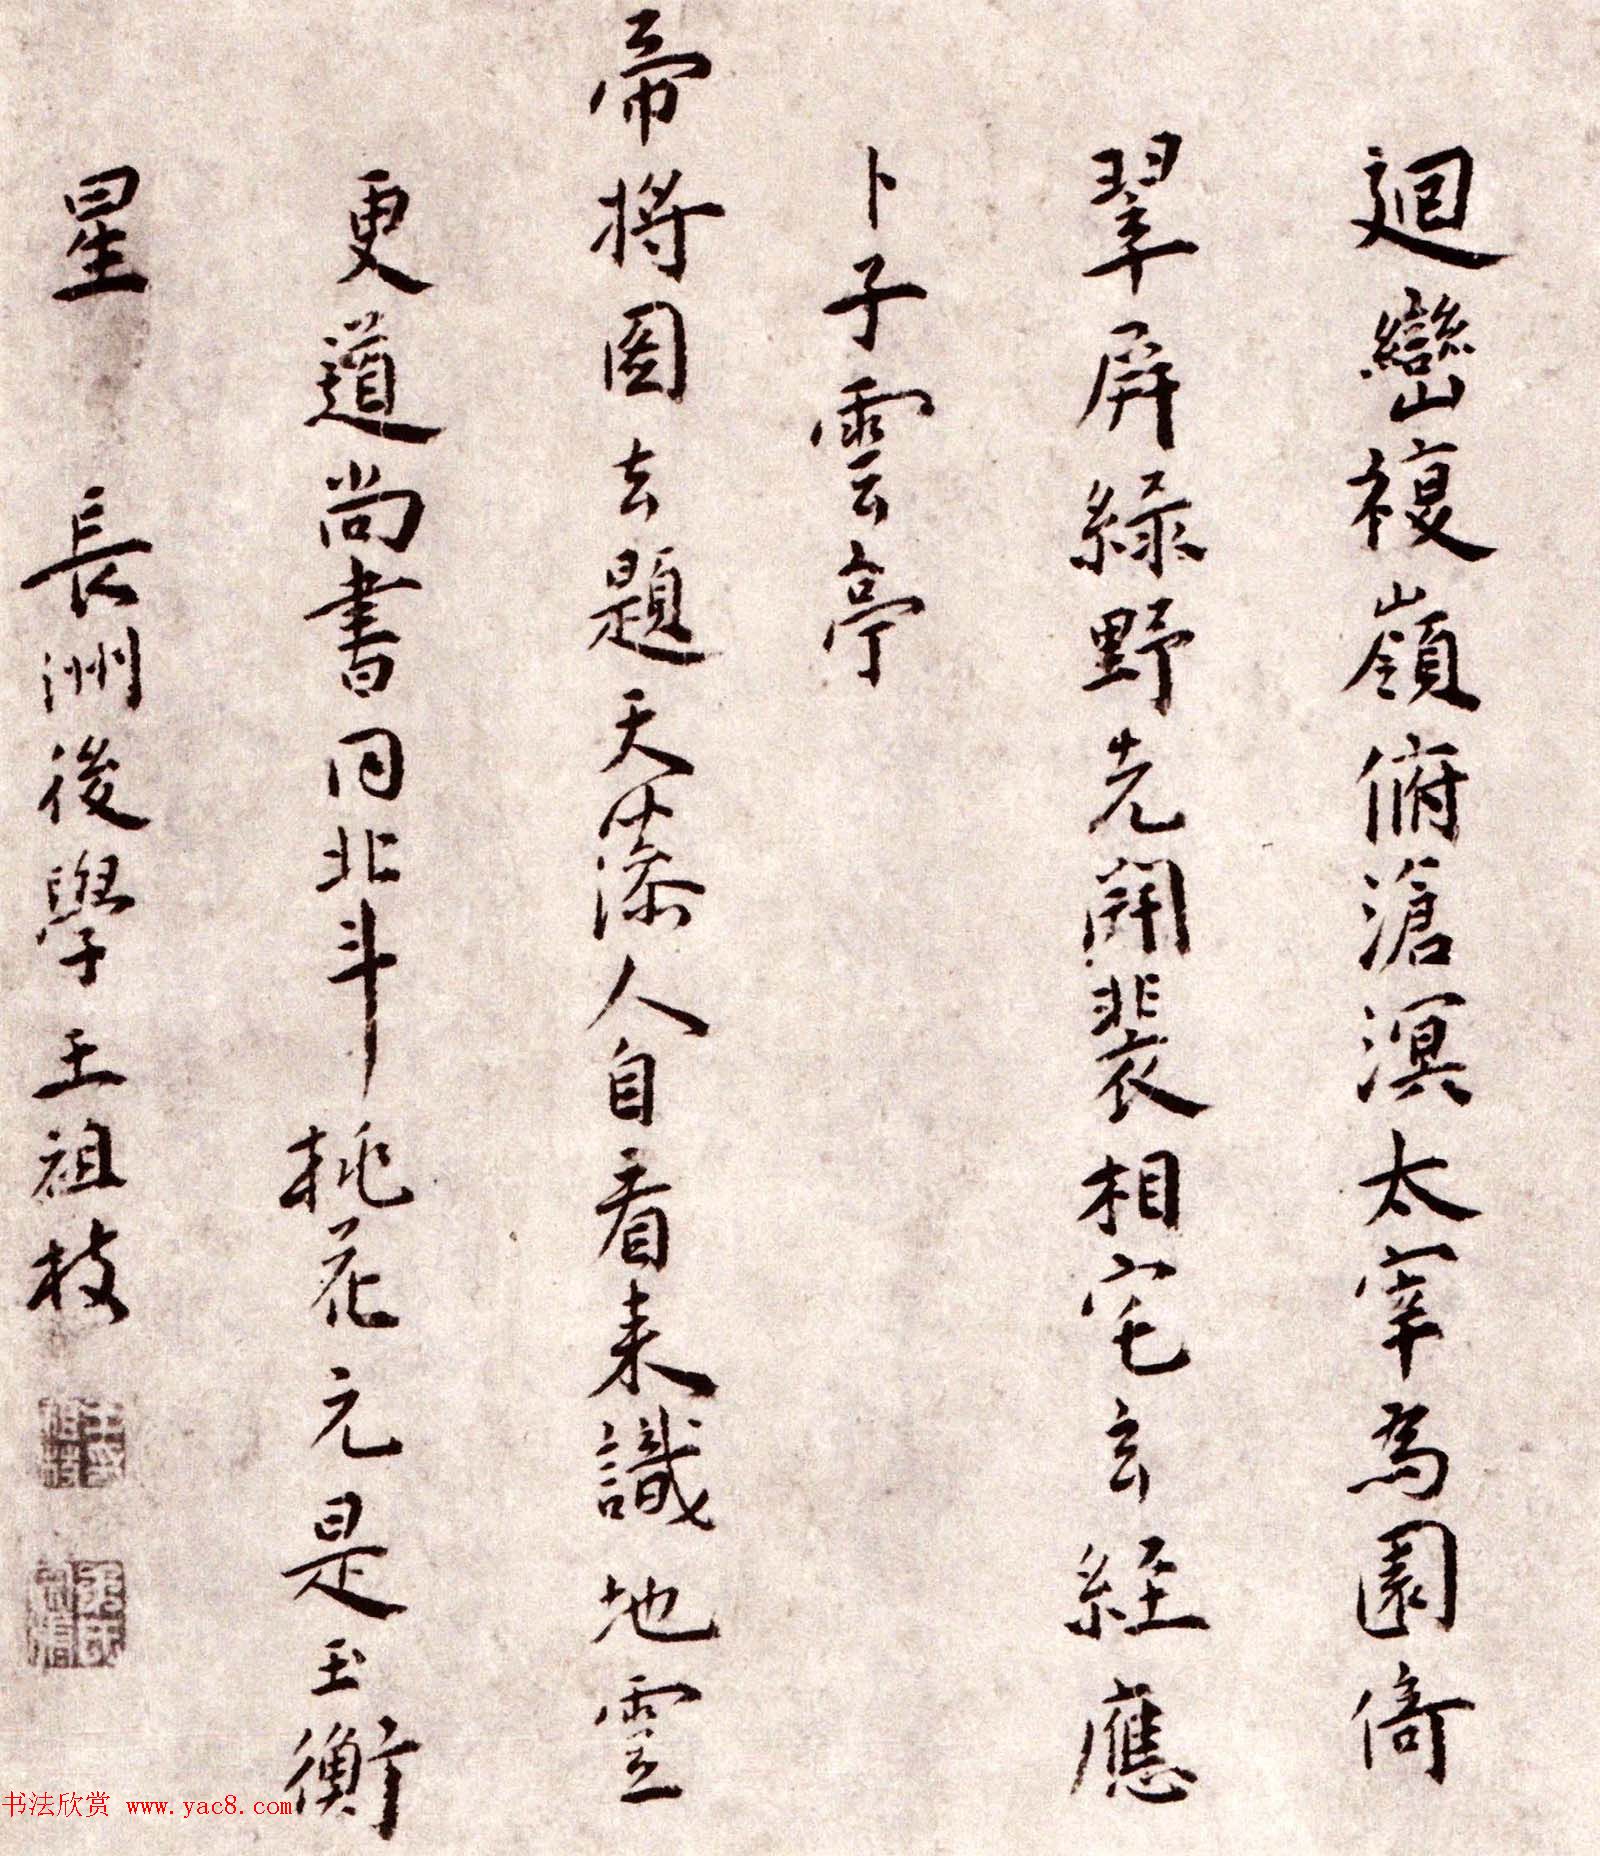 迴巒複嶺俯滄溟太宰為園倚
翠屏綠野先開裴相宅玄經應
卜子雲亭
帝將圖去題天藻人自看來識地靈
更道尚書同北斗桃花元是玉衡
星　長洲後學王祖枝
书法欣赏 www.yac8.com